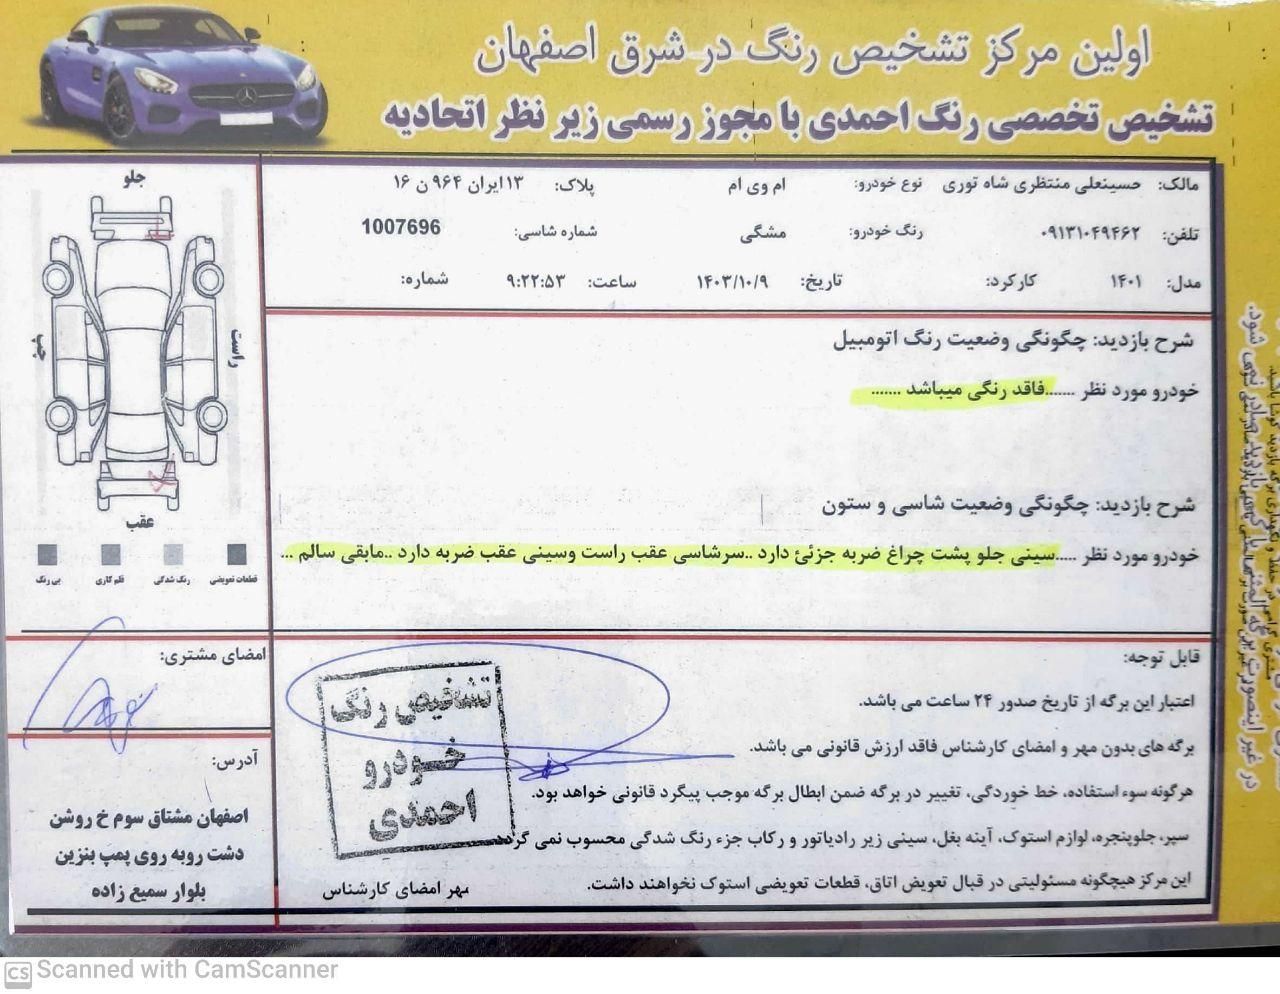 اولین مرکز تشخیص رنگ در شرق اصفهان
تشخیص تخصصی رنگ احمدی با مجوز رسمی زیر نظر اتحادیه
مالک: حسینعلی منتظری شاه توری نوع خودرو: ام وی ام پلاک: ۱۳ایران ۹۶۴ ن ۱۶
تلفن: ۰۹۱۳۱۰۴۹۴۶۲ رنگ خودرو: مشگی شماره شاسی: 1007696
مدل: ۱۴۰۱ کارکرد: تاریخ: ۱۴۰۳/۱۰/۹ ساعت: ۹:۲۲:۵۳ شماره:
شرح بازدید: چگونگی وضعیت رنگ اتومبیل
خودرو مورد نظر .......فاقد رنگی میباشد .......
شرح بازدید: چگونگی وضعیت شاسی و ستون
خودرو مورد نظر .....سینی جلو پشت چراغ ضربه جزئئ دارد ..سرشاسی عقب راست وسینی عقب ضربه دارد ..مابقی سالم ...
جلو
راست
چپ
عقب
قطعات تعویضی رنگ شدگی قلم کاری بی رنگ
امضای مشتری:
آدرس:
اصفهان مشتاق سوم خ روشن
دشت روبه روی پمپ بنزین
بلوار سمیع زاده
قابل توجه:
اعتبار این برگه از تاریخ صدور ۲۴ ساعت می باشد.
برگه های بدون مهر و امضای کارشناس فاقد ارزش قانونی می باشد.
هرگونه سوء استفاده، خط خوردگی، تغییر در برگه ضمن ابطال برگه موجب پیگرد قانونی خواهد بود.
سپر، جلوپنجره، لوازم استوک، آینه بغل، سینی زیر رادیاتور و رکاب جزء رنگ شدگی محسوب نمی گردد
این مرکز هیچگونه مسئولیتی در قبال تعویض اتاق، قطعات تعویضی استوک نخواهند داشت.
مهر امضای کارشناس
تشخیص رنگ
خودرو
احمدی
CS Scanned with CamScanner